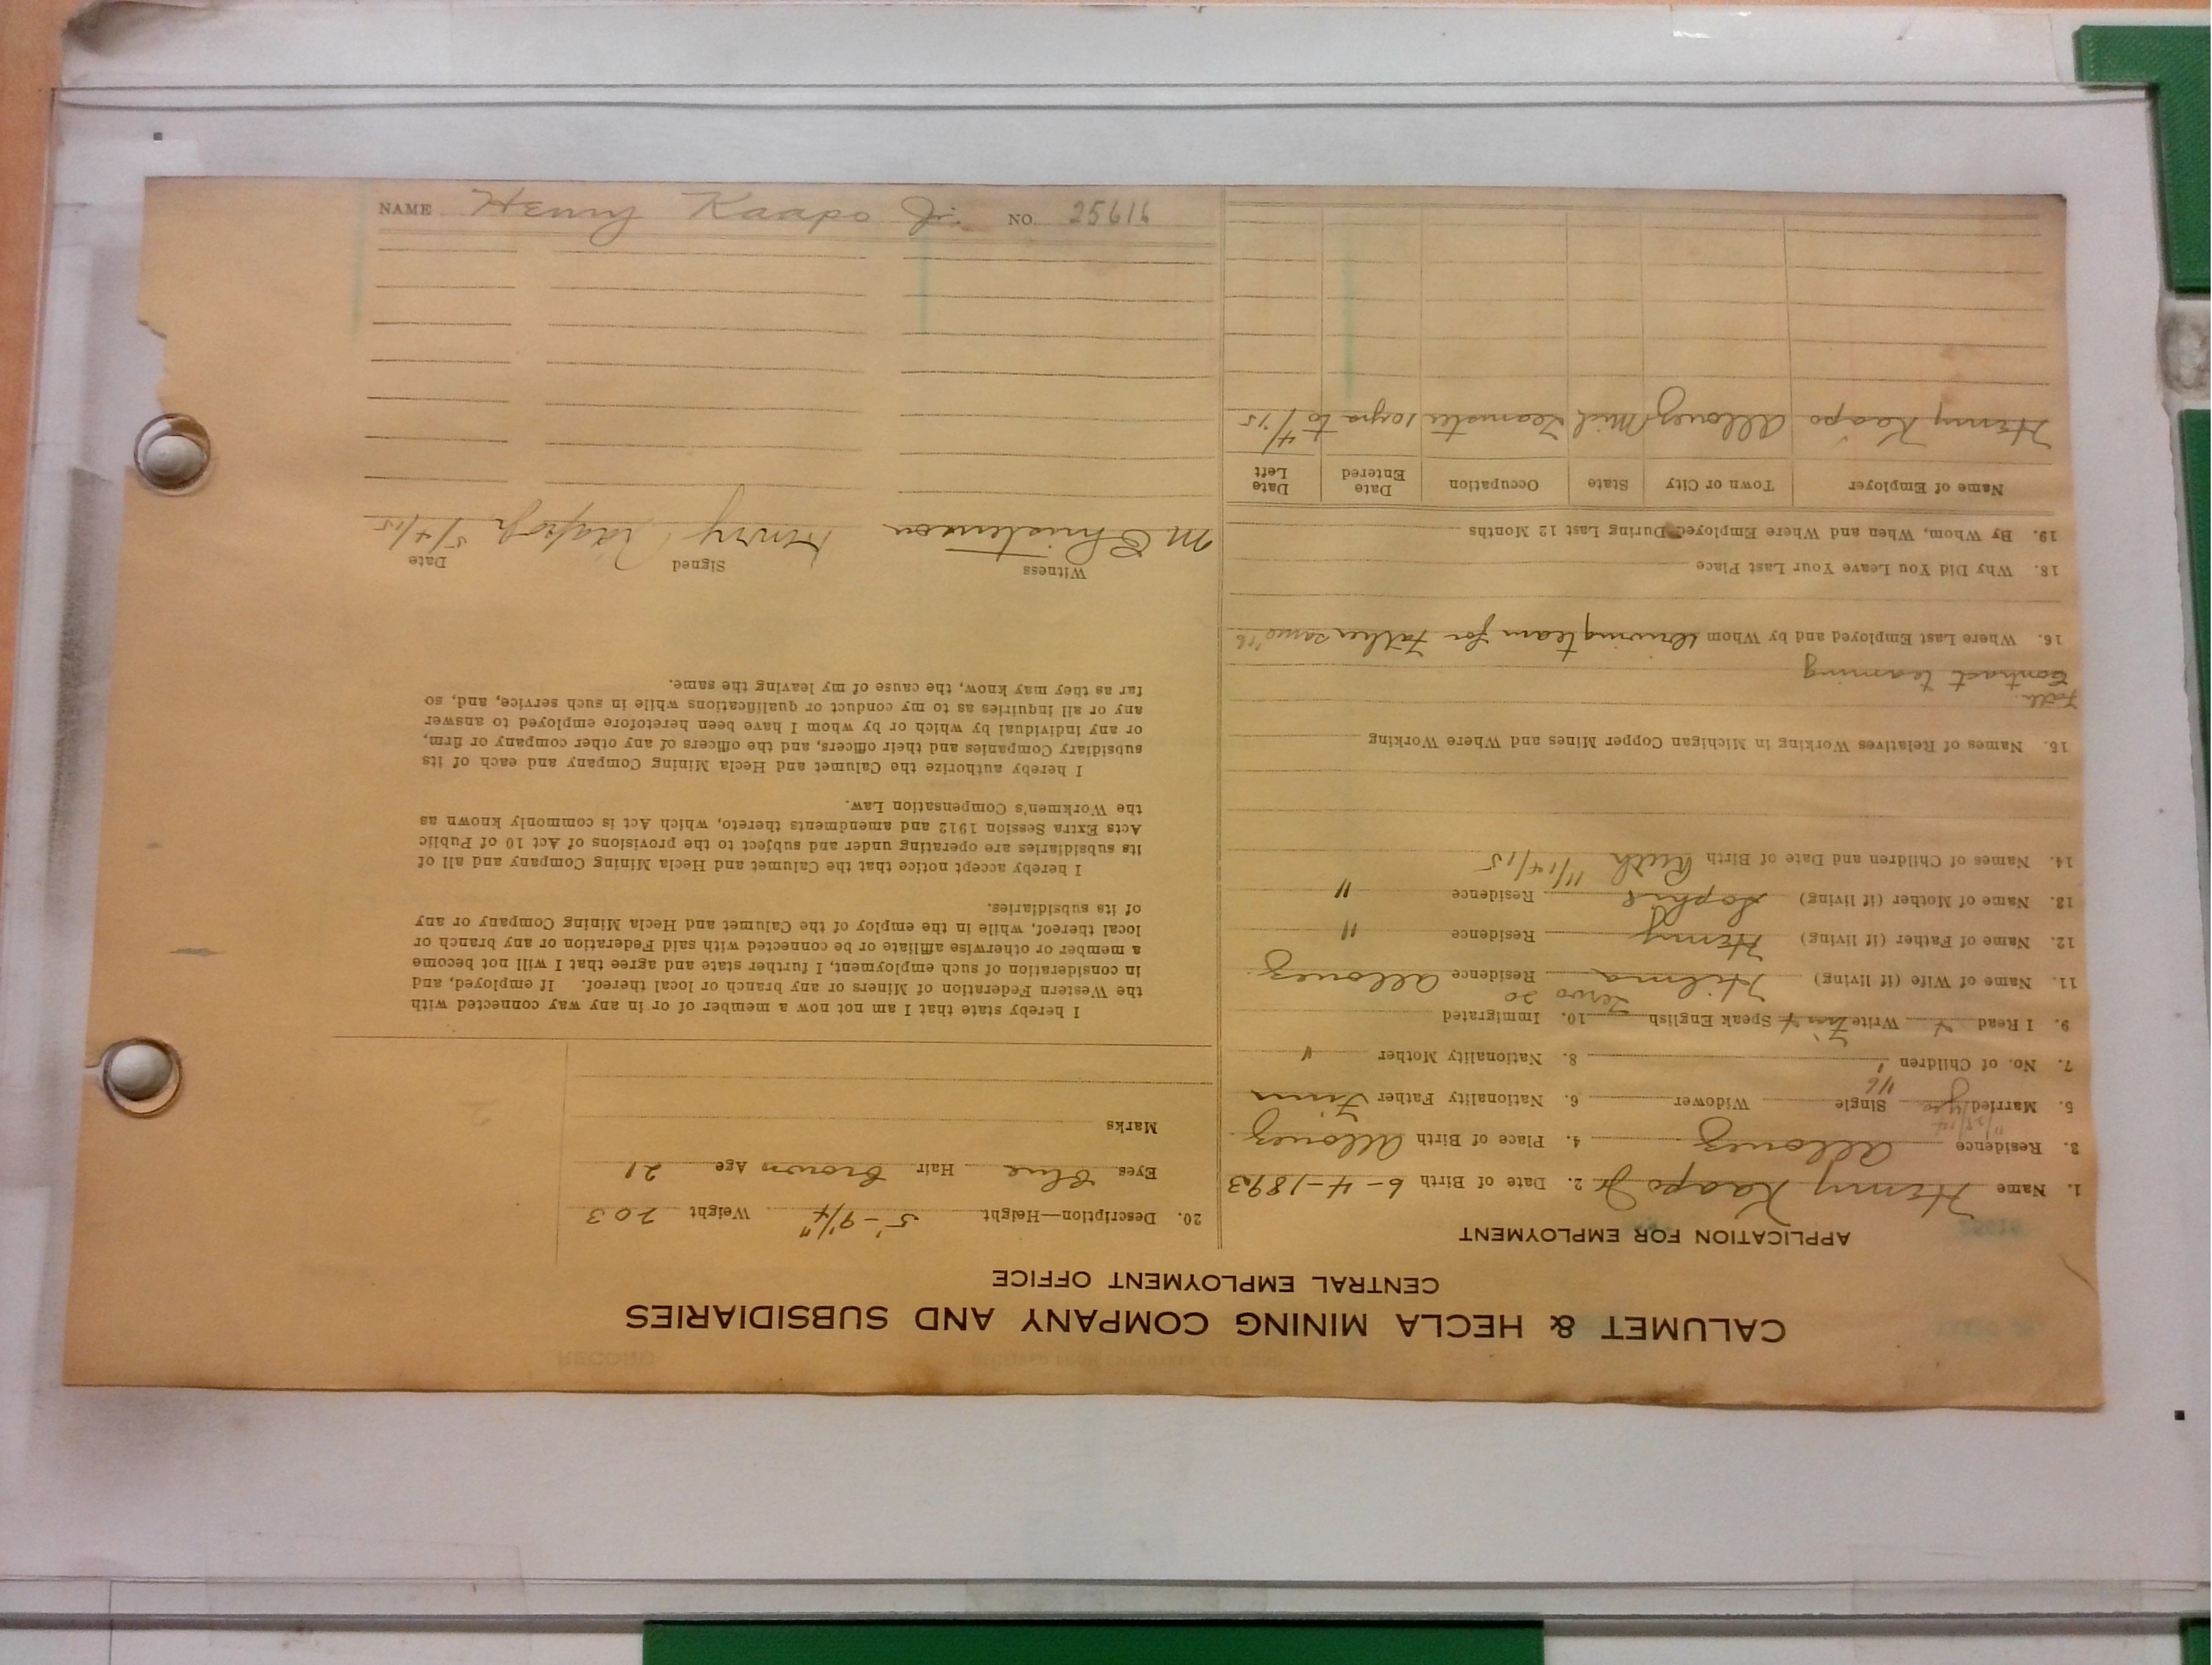 CALUMET & HECLA MINING COMPANY AND SUBSIDIARIES
CENTRAL EMPLOYMENT OFFICE
APPLICATION FOR EMPLOYMENT
1. Name Henry Kaapo Jr. 2. Date of Birth 6-4-1893
3. Residence Allouez 4. Place of Birth Allouez
5. Married yes Single Widower 6. Nationality Father Finn
7. No. of Children 1 8. Nationality Mother "
9. I Read Write Finn Speak English 10. Immigrated
11. Name of Wife (if living) Hilma Residence Allouez
12. Name of Father (if living) Henry Residence "
13. Name of Mother (if living) Sophie Residence "
14. Names of Children and Date of Birth Ruth 11/14/15
15. Names of Relatives Working in Michigan Copper Mines and Where Working
Fath.
Contract teaming
16. Where Last Employed and by Whom Driving team for Father
18. Why Did You Leave Your Last Place
19. By Whom, When and Where Employed During Last 12 Months
Name of Employer Town or City State Occupation Date Entered Date Left
Henry Kaapo Allouez Mich Teamster 10 yrs to 4/15
20. Description—Height 5'-9 1/4" Weight 203
Eyes Blue Hair Brown Age 21
Marks
I hereby state that I am not now a member of or in any way connected with
the Western Federation of Miners or any branch or local thereof. If employed, and
in consideration of such employment, I further state and agree that I will not become
a member or otherwise affiliate or be connected with said Federation or any branch or
local thereof, while in the employ of the Calumet and Hecla Mining Company or any
of its subsidiaries.
I hereby accept notice that the Calumet and Hecla Mining Company and all of
its subsidiaries are operating under and subject to the provisions of Act 10 of Public
Acts Extra Session 1912 and amendments thereto, which Act is commonly known as
the Workmen's Compensation Law.
I hereby authorize the Calumet and Hecla Mining Company and each of its
subsidiary Companies and their officers, and the officers of any other company or firm,
or any individual by which or by whom I have been heretofore employed to answer
any or all inquiries as to my conduct or qualifications while in such service, and, so
far as they may know, the cause of my leaving the same.
Witness Signed Date
M Christenson Henry Kaapo Jr 5/4/15
NAME Henry Kaapo Jr. NO. 25616